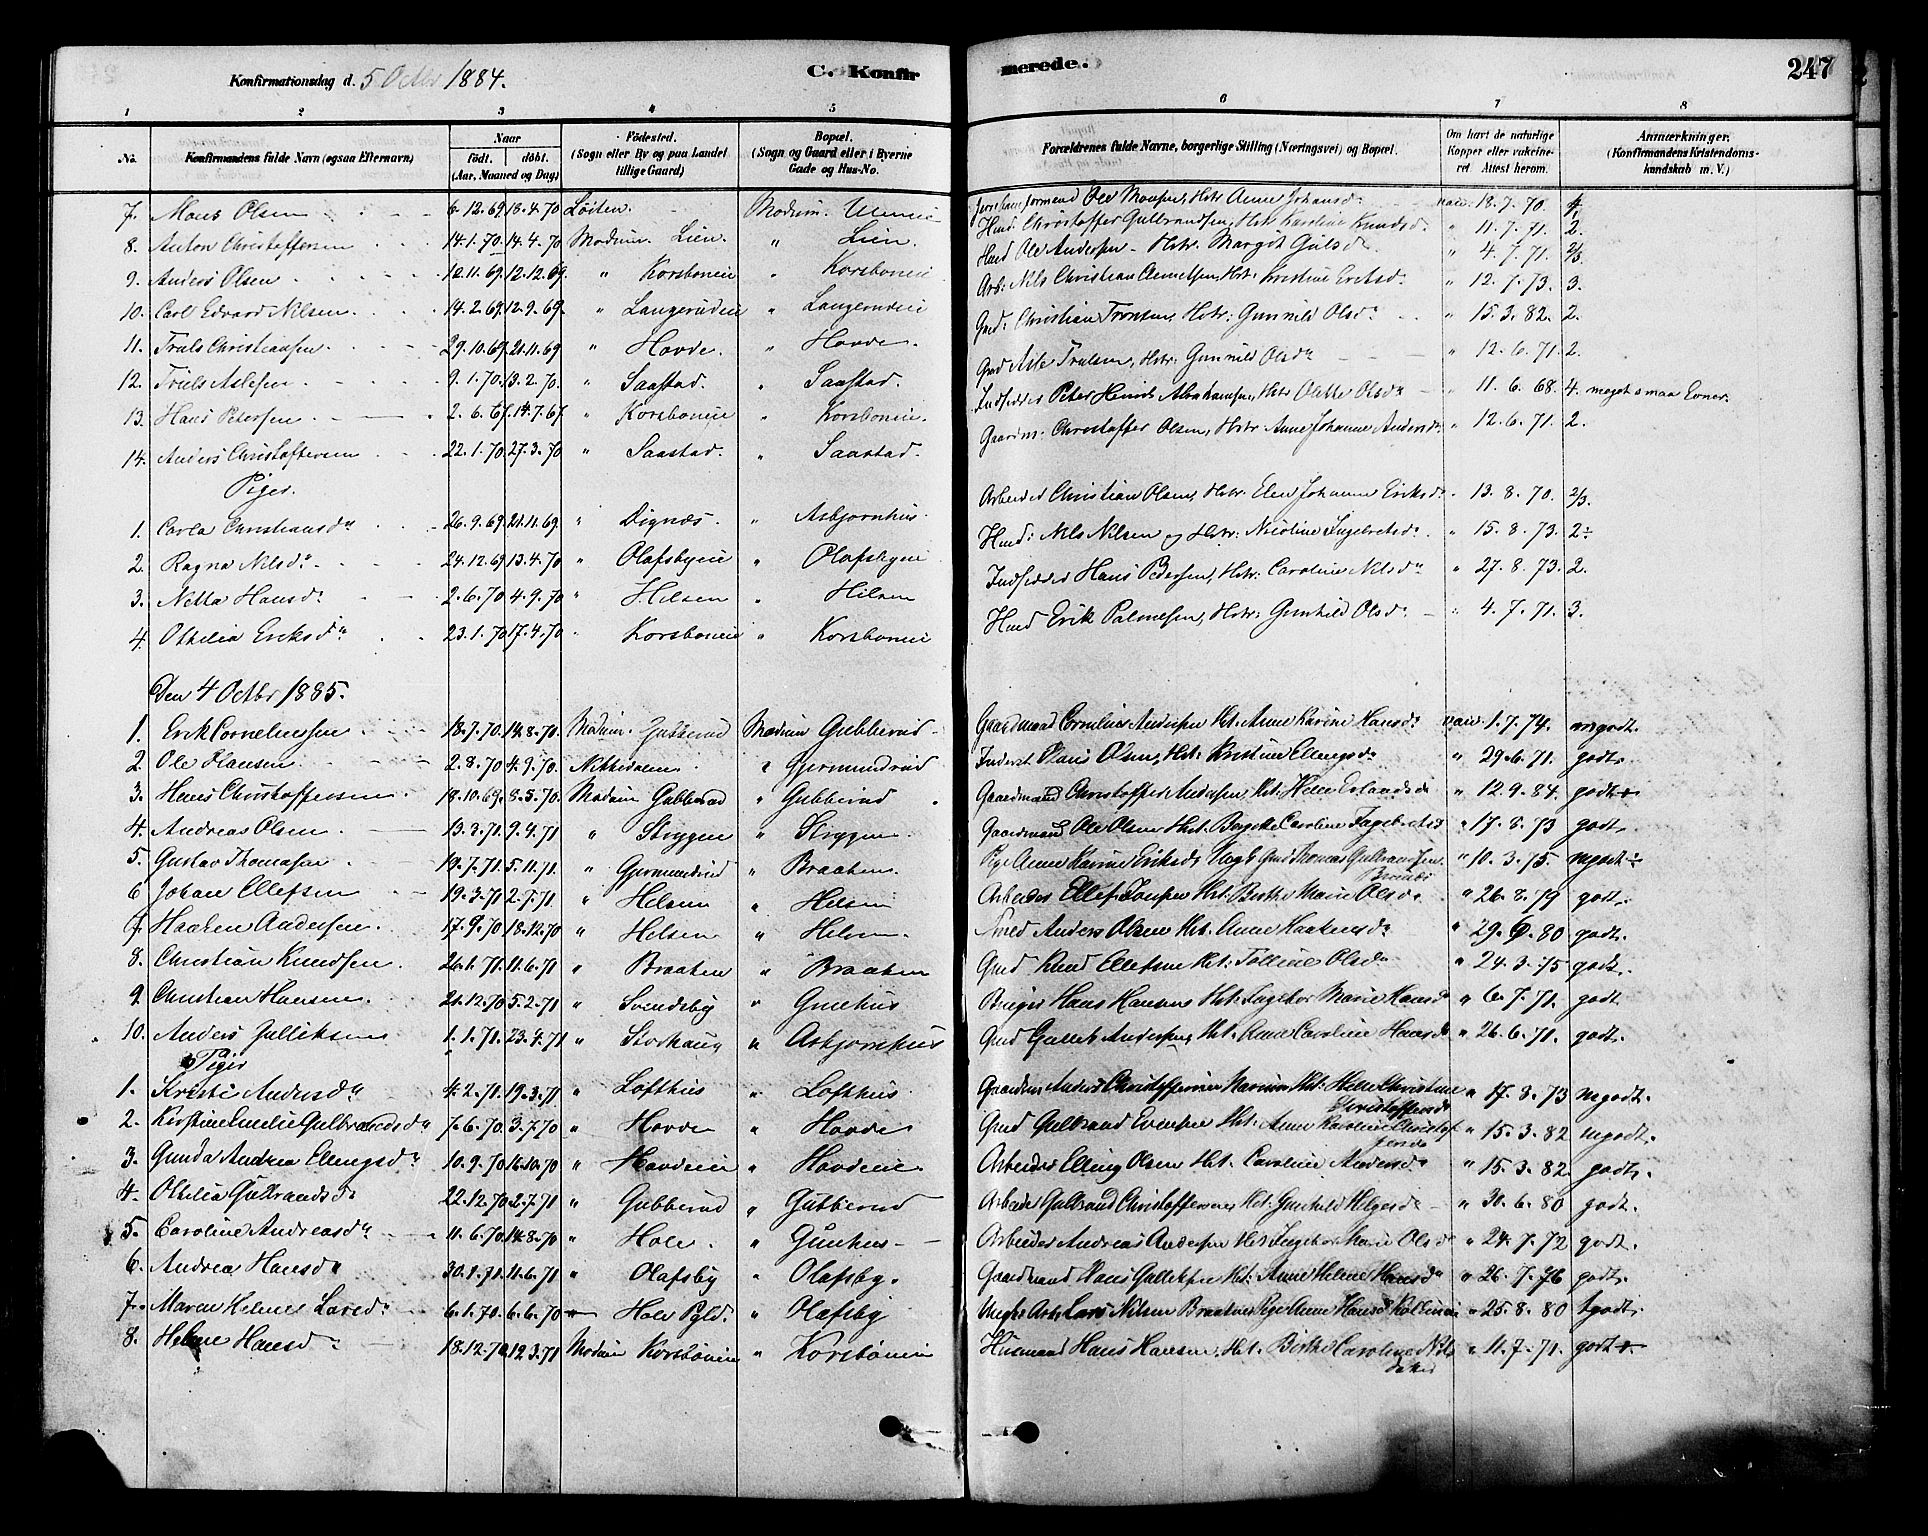 Konfirmationsdag d. 5 Octbr 1884. C. Konfirmerede. 247
1 2 3 4 5 6 7 8
No. Konfirmandens fulde Navn (ogsaa Efternavn) Naar født. døbt. (Aar, Maaned og Dag) Fødested. (Sogn eller By og paa Landet tillige Gaard) Bopæl. (Sogn og Gaard eller i Byerne Gade og Hus-No. Forældrenes fulde Navne, borgerlige Stilling (Næringsvei) og Bopæl. Om havt de naturlige Kopper eller vakcineret. Attest herom. Anmærkninger. (Konfirmandens Kristendomskundskab m. V.)
7. Hans Olsen 6.12.69 18.4.70 Løiten Modum. Ole Hstr Anne Johansd. vacc. 18.7.70.
8. Anton Christoffersen 14.1.70. 14.4.70 Modum. Lien. " Lien. Husd Christoffer Gulbrandsen, Hstr Karoline Knudsd. " 11.7.71. 2.
9. Anders Olsen 12.12.69. " Korsboneie " Korsboneie Husd Ole Andersen - Hstr. Margit Gulsd. " 4.7.71. 2/3
10. Carl Edvard Nilsen. 14.2.69. 12.9.69. " Langerudeie " Langerudeie Arb. Nils Christian Hstr. Kristine Eriksd. " 12.7.73. 3.
11. Truls Christiansen. 29.10.69. 21.11.69 " Hovde. " Hovde. Gmd: Christian Tronsen, Hstr: Gunnild Olsd. " 15.3.82. 2.
12. Truls Aslesen 9.1.70. 13.2.70. " Saastad. " Saastad. Gmd Asle Trulsen, Hstr. Gunnild Olsdr " 12.6.71. 2.
13. Hans Petersen. 2.6.67. 14.7.67. " Korsboneie " Korsboneie. Indsidder Peter Henrik Abrahamsen, Hstr Olette Olsdr " 11.6.68. 4. meget smaa Evner.
14. Anders Christoffersen 22.1.70 27.3.70 " Saastad. " Saastad. Gaardm: Christoffer Olsen, Hstr. Anne Johanne Andersd. " 12.6.71. 2.
Piger.
1. Carla Christiansdr 26.9.69 21.11.69. " Dignæs. " Asbjørnhus. Arbeider Christian Olsen, Hstr. Elen Johanne Eriksdr. 13.8.70. 2/3.
2. Ragna Nilsdr. 24.12.69 13.4.70 " Olafsbyeie " Olafsbyeie Husd: Nils Nilsen og Hstr: Nicoline Ingebretsdr. " 15.8.73. 2÷
3. Netta Hansdr 2.6.70 4.9.70 " Hilsen " Hilsen Indsidder Hans Pedersen, Hstr. Caroline Nilsdr " 27.8.73. 2.
4. Othilia Eriksdr. 23.1.70 17.4.70 " Korsboneie " Korsboneie Husd Erik Palmesen, Hstr: Gunhild Olsdr. " 4.7.71. 3.
Den 4 Octbr 1885.
1. Erik Corneliussen 18.7.70. 14.8.70. Modum. Gubberud Modum Gubberud Gaardmand Cornelius Andersen Hst. Anne Karine Hansdr vacc. 1.7.74. mgodt.
2. Ole Hansen 2.8.70 4.9.70. Nittedalen. " Gjermundrud Inderst Hans Olsen, Hst: Kristine Ellingsdr " 29.6.71. godt.
3. Hans Christoffersen 18.10.69. 8.5.70. Modum Gubberud " Gubberud Gaardmand Christoffer Andersen, Hst: Helene Erlandsdr " 12.9.84. godt+
4. Andreas Olsen 13.3.71. 9.4.71 " Strygen " Strygen. Gaardmand Ole Olsen Hst. Caroline Ingebretsd " 17.8.73 godt.
5. Gustav Thomasen 19.7.71. 5.11.71. " Gjermundrud " Braaten. Pige Anne Karine Eriksdr Ungk. Gmd Thomas Gulbrandsen " 10.3.75 mgodt÷
6 Johan Ellefsen 19.3.71 2.7.71 " Helsen " Helsen Arbeider Ellef Hst: Berthe Marie Olsdr. " 26.8.79 godt.
7. Haaken Andersen. 17.9.70. 18.12.70 " Helsen " Helsen. Smed Anders Olsen Hst. Anne Haakensdr " 29.9.80 godt.
8. Christian Knudsen 26.1.71. 11.6.71 " Braaten " Braaten Gmd Knud Ellefsen Hst: Olsdr " 24.3.75 godt.
9 Christian Hansen. 21.12.70. 5.2.71 " Svendsby " Gunhus Hans Hansen Hst: Ingebor Marie Hansd " 6.7.71. godt
10. Anders Gulliksen 1.1.71. 23.4.71 " Storhaug " Asbjørnhus Gmd Gullik Andersen, Hst. Anne Caroline Hansdr " 26.6.71. godt.
Piger
1. Kristi Andersdr 4.2.71. 19.3.71 " Lofthus " Lofthus. Gaardm Anders Christoffersen Hst: Helene Christine Christoffersdr " 17.8.73 mgodt.
2. Kirstine Emelie Gulbrandsdr 7.6.70 3.7.70 " Hovde " Hovde Gmd Gulbrand Evensen Hst: Anne Karoline Christoffersdr " 15.3.82 mgodt.
3. Gunda Andrea Ellingsdr 10.9.70 16.10.70 " Hovdeeie " Hovdeeie Arbeider Elling Olsen Hst. Caroline Andersdr " 15.3.82. godt.
4. Othilia Gulbrandsdr 22.12.70 2.7.71 " Gubberud " Gubberud Arbeider Gulbrand Christoffersen Hst: Gunhild Helgesdr " 30.6.80 godt.
5. Caroline Andreasdr 11.6.70 14.8.70 " Hole. " Gunhus Arbeider Andreas Andersen Hst Ingebor Marie Olsdr " 24.7.72 godt.
6. Andrea Hansdr 30.1.71 11.6.71 " Olafsby " Olafsby. Gaardmand Hans Gulliksen Hst: Anne Helene Hansdr " 26.7.76 godt.
7. Maren Helene Larsdr 6.1.70. 6.6.70 Hole Pgld. " Olafsby Ungk. Arb. Lars Nilsen Braaten Pige Anne Hansd " 25.8.80 tgodt.
8. Helene Hansdr 18.12.70. 12.3.71 Modum Korsbøneie " Korsbøneie Husmand Hans Hansen, Hst. Birthe Caroline Nilsdatter " 11.7.71. godt+.